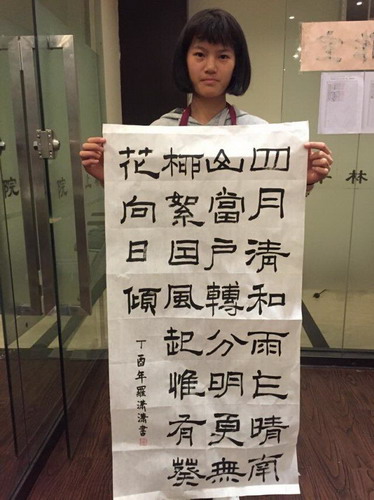 四月清和雨乍晴南
山當户轉分明更無
柳絮因風起惟有葵
花向日傾
丁酉年羅瀟瀟書
院
院
林